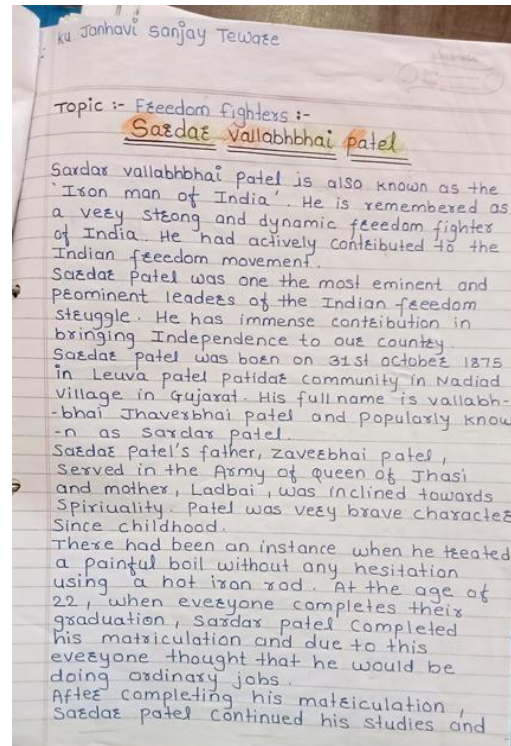 Ku. Janhavi Sanjay Teware
Topic :- Freedom fighters :-
Sardar vallabhbhai patel
Sardar vallabhbhai patel is also known as the
'Iron man of India'. He is remembered as
a very strong and dynamic freedom fighter
of India. He had actively contributed to the
Indian freedom movement.
Sardar patel was one the most eminent and
prominent leaders of the Indian freedom
struggle. He has immense contribution in
bringing Independence to our country.
Sardar patel was born on 31st october 1875
in Leuva patel patidar community in Nadiad
village in Gujarat. His full name is vallabh-
-bhai Jhaverbhai patel and popularly know
-n as sardar patel.
Sardar patel's father, zaverbhai patel,
served in the Army of queen of Jhasi
and mother, Ladbai, was inclined towards
Spiriuality. Patel was very brave character
Since childhood.
There had been an instance when he treated
a painful boil without any hesitation
using a hot iron rod. At the age of
22, when everyone completes their
graduation, sardar patel completed
his matriculation and due to this
everyone thought that he would be
doing ordinary jobs.
After completing his matriculation,
Sardar patel continued his studies and